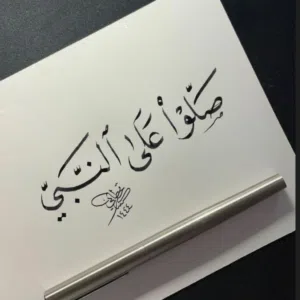 صَلُّوْا عَلَى ٱلنَّبِيِّ
١٤٤٤